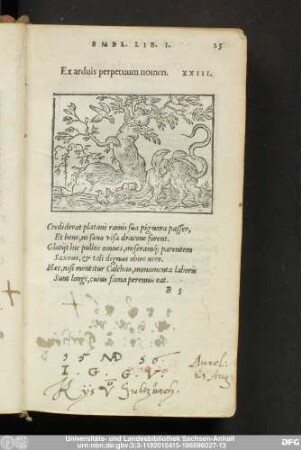 EMBL. LIB. I. 25
Ex arduis perpetuum nomen. XXIII.
Crediderat platani ramis sua pignora passer,
Et bene, ni sæuo visa dracone forent.
Glutijt hic pullos omnes, miseramq; parentem
Saxeus, & tali dignus obire nece.
Hæc, nisi mentitur Calchas, monumenta laboris
Sunt longi, cuius fama perennis eat.
B 5
15 56
I. G. G. V.
Universitäts- und Landesbibliothek Sachsen-Anhalt
urn:nbn:de:gbv:3:3-1192015415-186696027-13
DFG